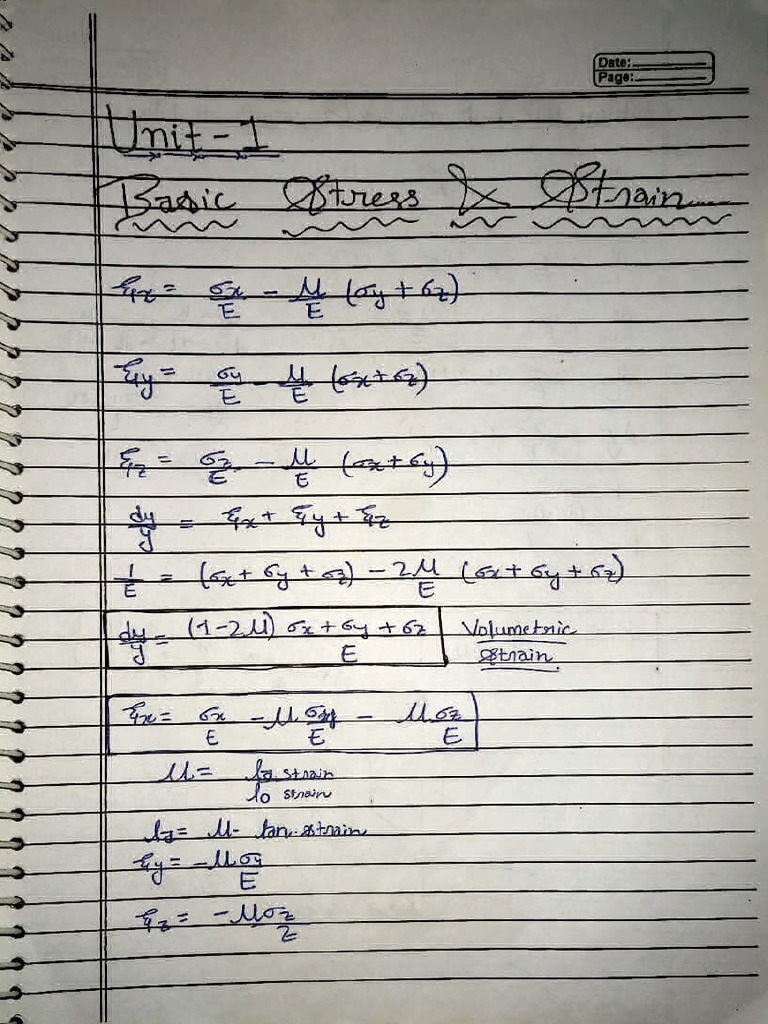 Date:
Page:
Unit - 1
Basic Stress & Strain
ξx = σx/E - μ/E (σy + σz)
ξy = σy/E - μ/E (σx + σz)
ξz = σz/E - μ/E (σx + σy)
dy/y = ξx + ξy + ξz
1/E = (σx + σy + σz) - 2μ/E (σx + σy + σz)
dy/y = (1-2μ) σx + σy + σz / E Volumetric
Strain
ξx = σx/E - μσy/E - μσz/E
μ = la strain
lo strain
= μ- strain
ξy = -μσy/E
ξz = -μσz/z